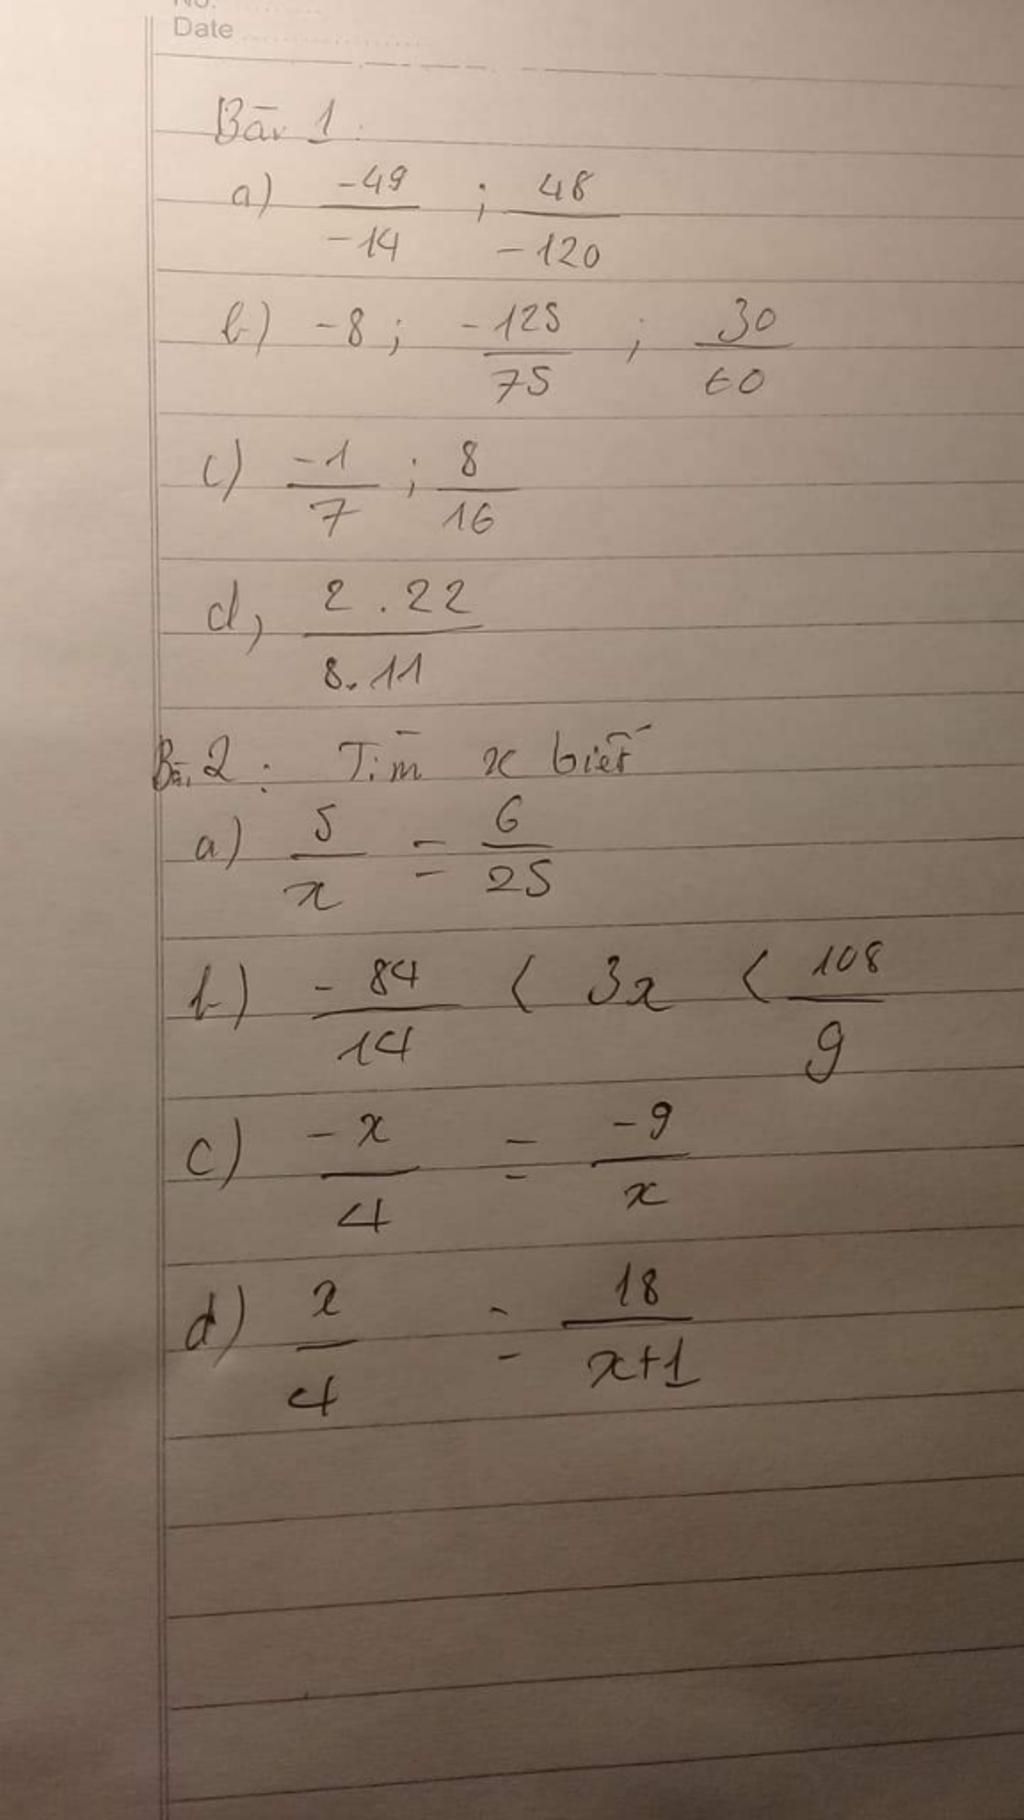 No.
Date
Bài 1:
a) -49/-14 ; 48/-120
b) -8 ; -125/75 ; 30/60
c) -1/7 ; 8/16
d, 2.22/8.11
Bài 2: Tìm x biết
a) 5/x = 6/25
b) -84/14 < 3x < 108/9
c) -x/4 = -9/x
d) x/4 = 18/x+1